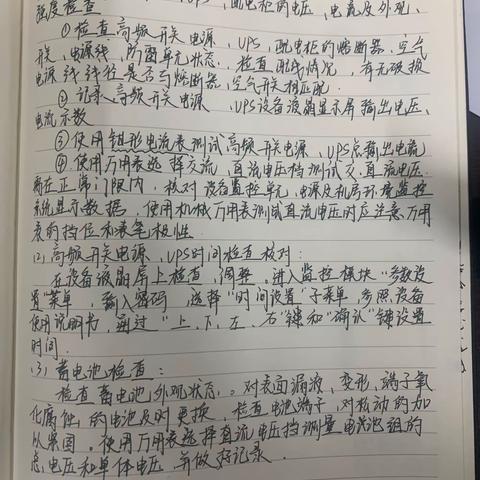 强度检查、UPS、配电柜的电压、电流及外观、
①检查高频开关电源、UPS、配电柜的熔断器、空气
开关、电源线、防雷单元状态、检查配线情况、有无破损
电源线线径是否与熔断器、空气开关相匹配.
②记录高频开关电源、UPS设备液晶显示屏输出电压、
电流示数
③使用钳形电流表测试高频开关电源、UPS总输出电流
④使用万用表选择交流、直流电压档测试交、直流电压.
需在正常门限内，核对设备监控单元、电源及机房环境监控
系统显示数据，使用机械万用表测试直流电压时应注意万用
表的挡位和表笔极性.
(2)高频开关电源、UPS时间检查核对：
在设备液晶屏上检查、调整，进入监控模块“参数设
置”菜单，输入密码，选择“时间设置”子菜单，参照设备
使用说明书，通过“上、下、左、右”键和“确认”键设置
时间.
(3)蓄电池检查：
检查蓄电池外观状态。对表面漏液、变形、端子氧
化腐蚀的电池及时更换，检查电池端子，对松动的加
以紧固。使用万用表选择直流电压挡测量电池组的
总电压和单体电压并做好记录.